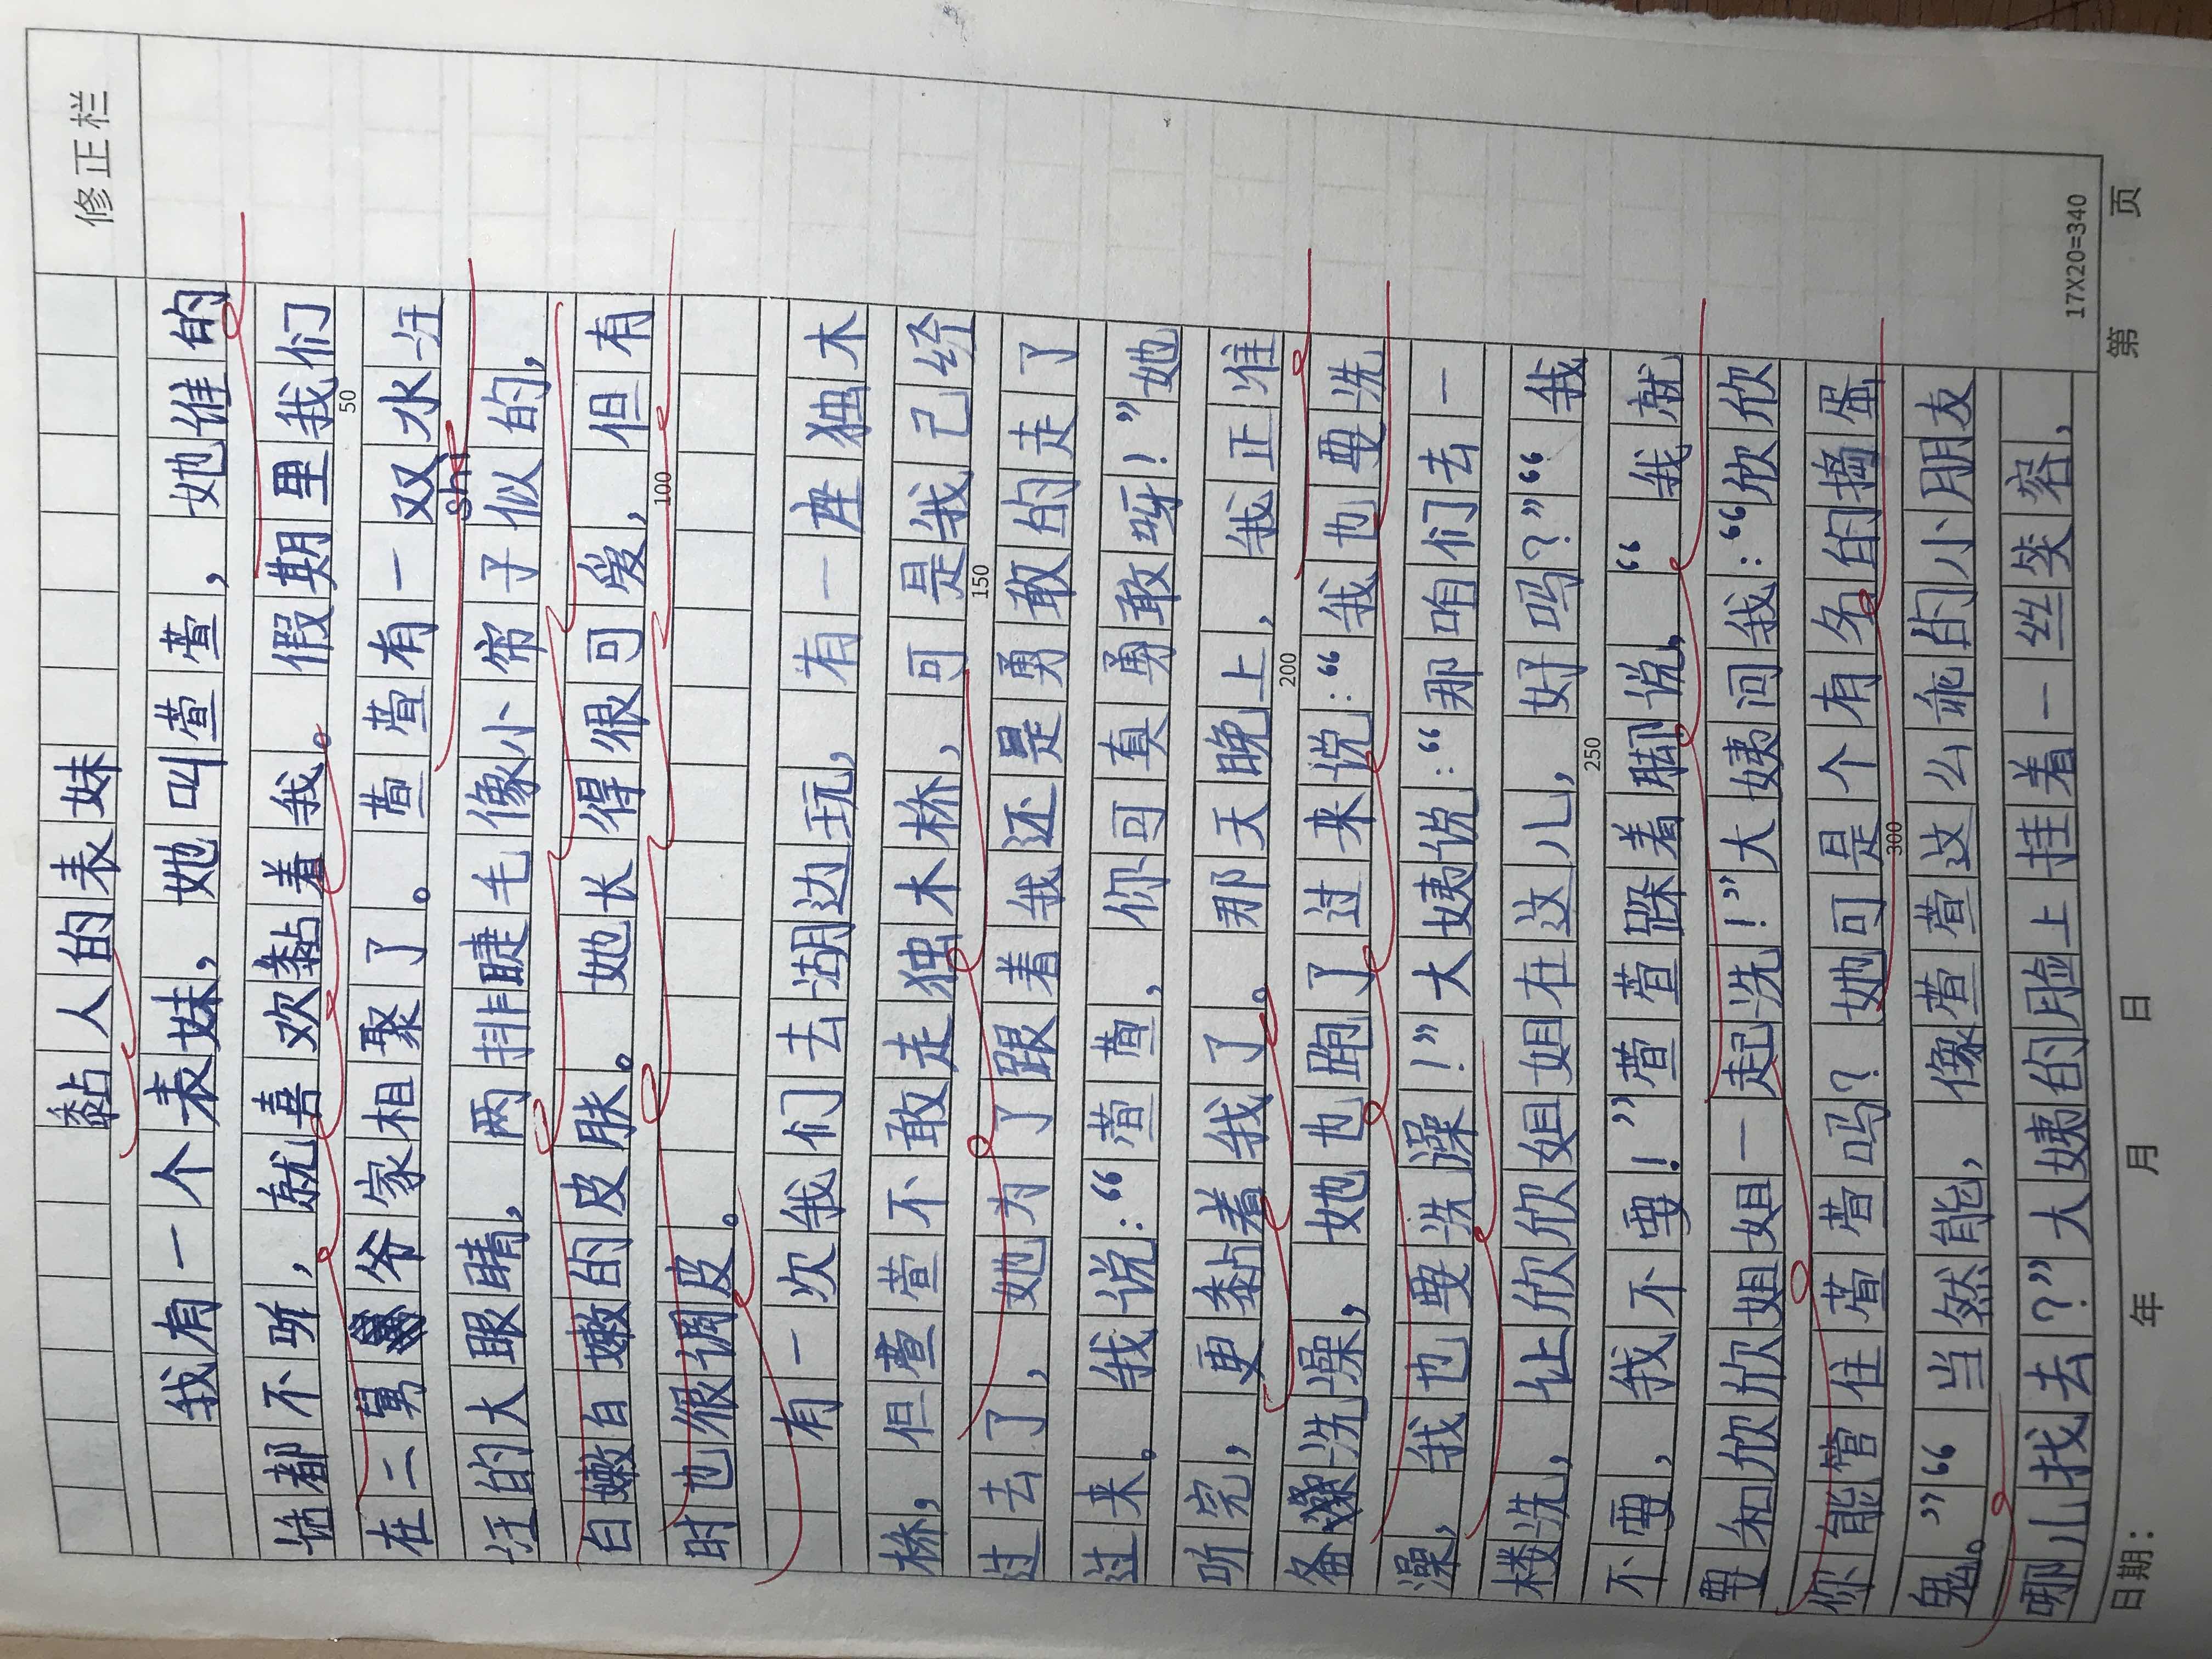 修正栏
黏人的表妹
我有一个表妹，她叫萱萱，她谁的
话都不听，就喜欢黏着我。假期里我们
50
在二舅爷家相聚了。萱萱有一双水汪
shì
汪的大眼睛，两排睫毛像小帘子似的，
白嫩白嫩的皮肤。她长得很可爱，但有
100
时也很调皮。
有一次我们去湖边玩，有一座独木
桥，但萱萱不敢走独木桥，可是我已经
150
过去了，她为了跟着我还是勇敢的走了
过来。我说：“萱萱，你可真勇敢呀！”她
听完，更黏着我了。那天晚上，我正准
200
备洗澡，她也跑了过来说：“我也要洗
澡，我也要洗澡！”大姨说：“那咱们去一
楼洗，让欣欣姐姐在这儿，好吗？”“我
250
不要，我不要！”萱萱跺着脚说，“我就
要和欣欣姐姐一起洗！”大姨问我：“欣欣
你能管住萱萱吗？她可是个有名的捣蛋
300
鬼。”“当然能，像萱萱这么乖的小朋友
哪儿找去？”大姨的脸上挂着一丝笑容，
17X20=340
日期： 年 月 日 第 页